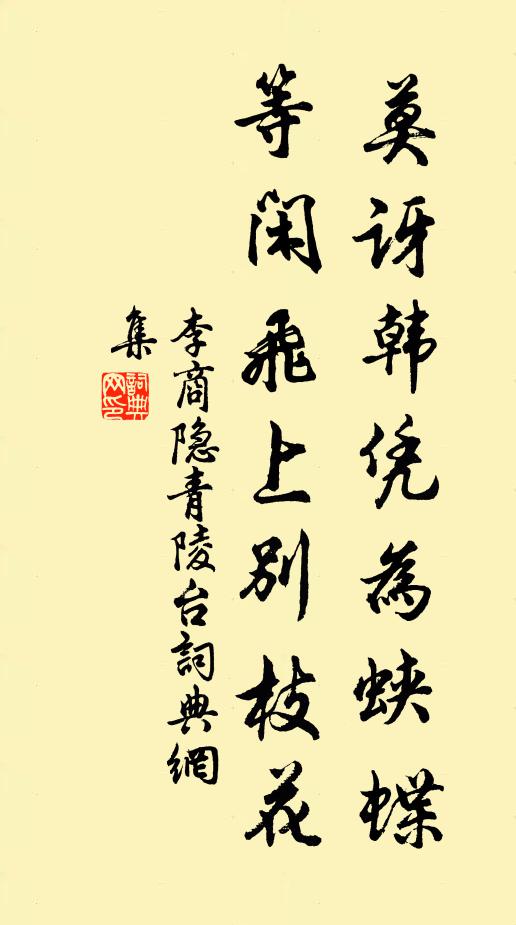 莫讶韩凭為蛱蝶
等闲飛上别枝花
李商隐青陵台詞典網
集
詞典网印